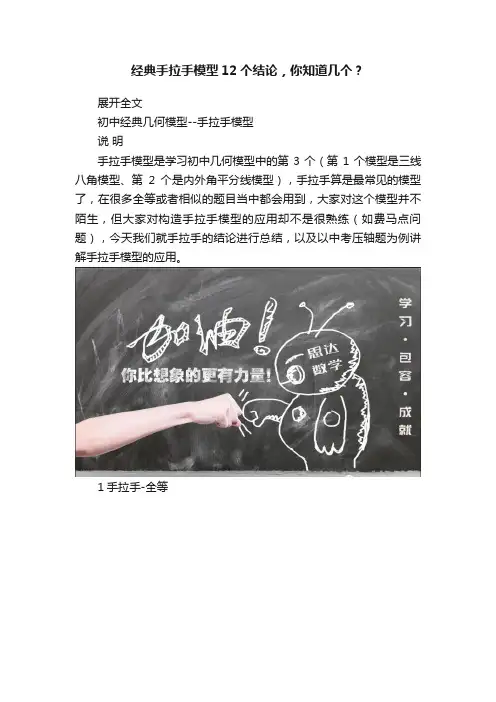 经典手拉手模型12个结论，你知道几个？
展开全文
初中经典几何模型--手拉手模型
说 明
手拉手模型是学习初中几何模型中的第3个（第1个模型是三线
八角模型、第2个是内外角平分线模型），手拉手算是最常见的模型
了，在很多全等或者相似的题目当中都会用到，大家对这个模型并不
陌生，但大家对构造手拉手模型的应用却不是很熟练（如费马点问
题），今天我们就手拉手的结论进行总结，以及以中考压轴题为例讲
解手拉手模型的应用。
加油！
你比想象的更有力量！
思达
数学
学习·包容·成就
1手拉手-全等